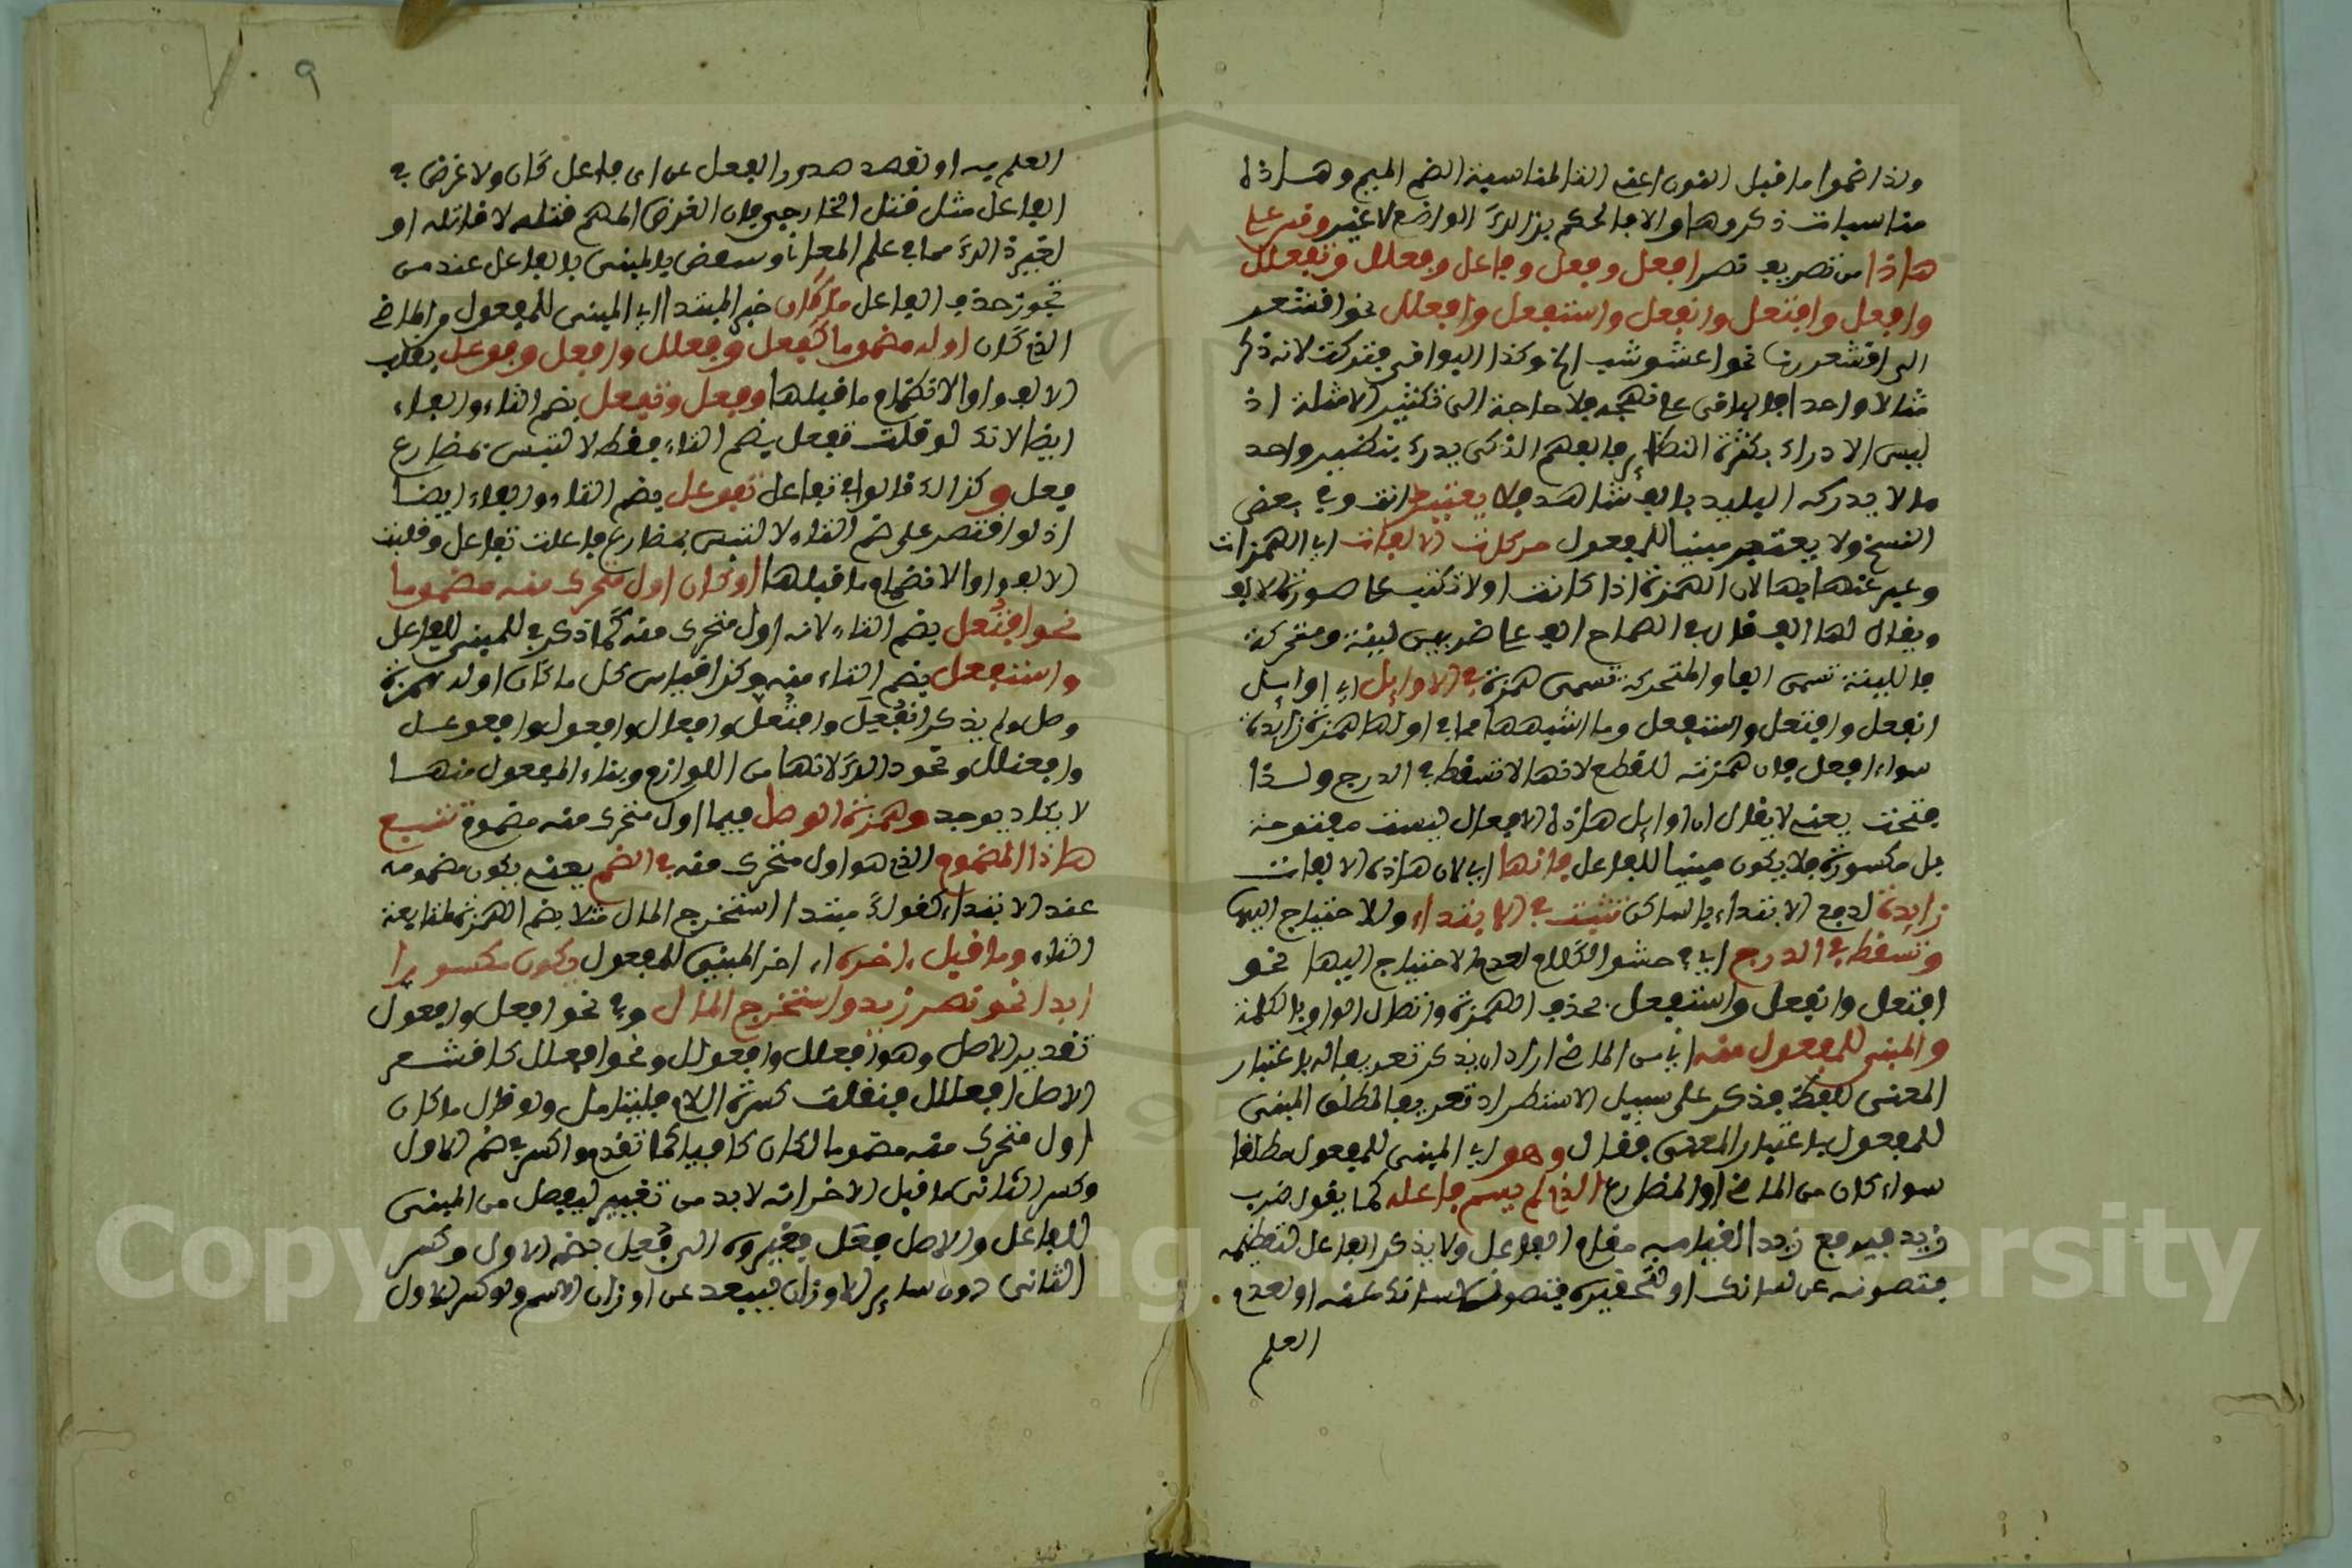 ولذا ضموا ما قبل النون اعنى التا لمناسبة الضم الميم وهاذه
مناسبات ذكروها والا فالحكم بذالك الواضع لا غير وقس على
هاذا من تصريف نصر افعل وفعل وفاعل وفعلل وتفعلل
وافعل وافتعل وانفعل واستفعل وافعلل نحو اقشعر
الى اقشعررنا نحو اعشوشب الخ وكذا البواقى فتركت لانه ذكر
مثالا واحدا فالباقى على نهجه فلا حاجة الى تكثير الامثلة اذ
ليس الادراك بكثرة النظاير فالفهم الذكى يدرك بنظير واحد
ما لا يدركه البليد بالف شاهد ولا يعتبر انت وفى بعض
النسخ ولا يعتبر مبنيا للمفعول حركات الالفات اى الهمزات
وعبر عنها بها لان الهمزة اذا كانت اولا تكتب على صورة الالف
ويقال لها الف قال فى الصحاح الف على ضربين لينة ومتحركة
فاللينة تسمى الفا والمتحركة تسمى همزة فى الاوايل اى اوايل
انفعل وافتعل واستفعل وما اشبهها مما فى اولها همزة زايدة
سواء افعل فان همزته للقطع لانها لا تسقط فى الدرج ولذا
فتحت يعنى لا يقال ان اوايل هاذه الافعال ليست مفتوحة
بل مكسورة فلا يكون مبنيا للفاعل فانها اى لان هاذه الالفات
زايدة لدفع الابتداء بالساكن تثبت فى الابتداء وللاحتياج اليها
وتسقط فى الدرج اى فى حشو الكلام لعدم الاحتياج اليها نحو
افتعل وانفعل واستفعل بحذف الهمزة واتصال الواو بالكلمة
والمبنى للمفعول منه اى من الماضى اراد ان يذكر تعريفاله باعتبار
المعنى اللفظ فذكر على سبيل الاستطراد تعريف المطلق المبنى
للمفعول باعتبار المعنى فقال وهو اى المبنى للمفعول مطلقا
سواء كان من الماضى او المضارع الذى لم يسم فاعله كما يقول ضرب
زيد فيرفع زيد لقيامه مقام الفاعل ولا يذكر الفاعل لتعظيمه
فتصونه عن لسانك او لتحقيره فتصون لسانك عنه او لعدم
العلم
٩
العلم به او تقصد صدور الفعل عن اى فاعل كان ولا غرض فى
الفاعل مثل قتل الخارجى فان الغرض المهم قتله لا قاتله او
لغير ذالك مما فى علم المعانى وسعض بالمبنى بالفاعل عند من
تجوز حذف الفاعل ما كان خبر المبتدا اى المبنى للمفعول من الماضى
الذى كان اوله مضموما كفعل وفعلل وافعل وفوعل بقلب
الالف واوا لانضمام ما قبلها وفعل وتفعل بضم التاء والفاء
ايضا لانك لو قلت تفعل بضم التاء فقط لالتبس بمضارع
فعل وكذالك قالوا فى تفاعل تفوعل بضم التاء والفاء ايضا
اذ لو اقتصر على ضم التاء لالتبس بمضارع فاعلت تفاعل وقلبت
الالف واوا لانضمام ما قبلها او كان اول متحرك منه مضموما
نحو افتعل بضم التاء لانه اول متحرك منه كما ذكر فى المبنى للفاعل
واستفعل بضم التاء منه وكذا قياس كل ما كان اوله همزة
وصل ولم يذكر انفعل وافعل وافعال وافعول وافعوعل
وافعنلل ونحو ذالك لانها من اللوازم وبناء المفعول منها
لا يكاد يوجد وهمزة الوصل فيما اول متحرك منه مضموم تتبع
هاذا المضموم الذى هو اول متحرك منه فى الضم يعنى يكون مضمومه
عند الابتداء كقولك مبتدا استخرج المال مثلا بضم الهمزة لمتابعة
التاء وما قبل اخره اى اخر المبنى للمفعول يكون مكسورا
ابدا نحو نصر زيد واستخرج المال وفى نحو افعل وافعول
تقدير الاصل وهو افعلل وافعولل ونحو افعلل كاقشعر
الاصل افعللل فنقلت كسرة اللام فليتامل ولو قال ما كان
اول متحرك منه مضموما لكان كافيا كما تقدم والسر فى ضم الاول
وكسر الثانى ما قبل الاخر انه لا بد من تغيير ليفصل من المبنى
للفاعل والاصل فعل فغيروه الى فعل بضم الاول وكسر
الثانى دون ساير الاوزان ليبعد عن اوزان الاسم ولو كسر الاول
Copyright © King Saud University